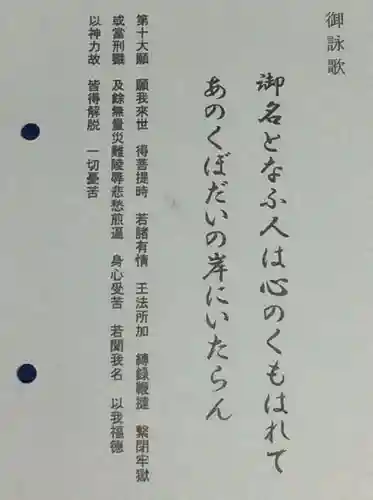 御詠歌
御名となふ人は心のくもはれて
あのくぼだいの岸にいたらん
第十大願 願我來世 得菩提時 若諸有情 王法所加 縛録鞭撻 繋閉牢獄
或當刑戮 及餘無量災難陵辱悲愁煎逼 身心受苦 若聞我名 以我福德
以神力故 皆得解脱 一切憂苦